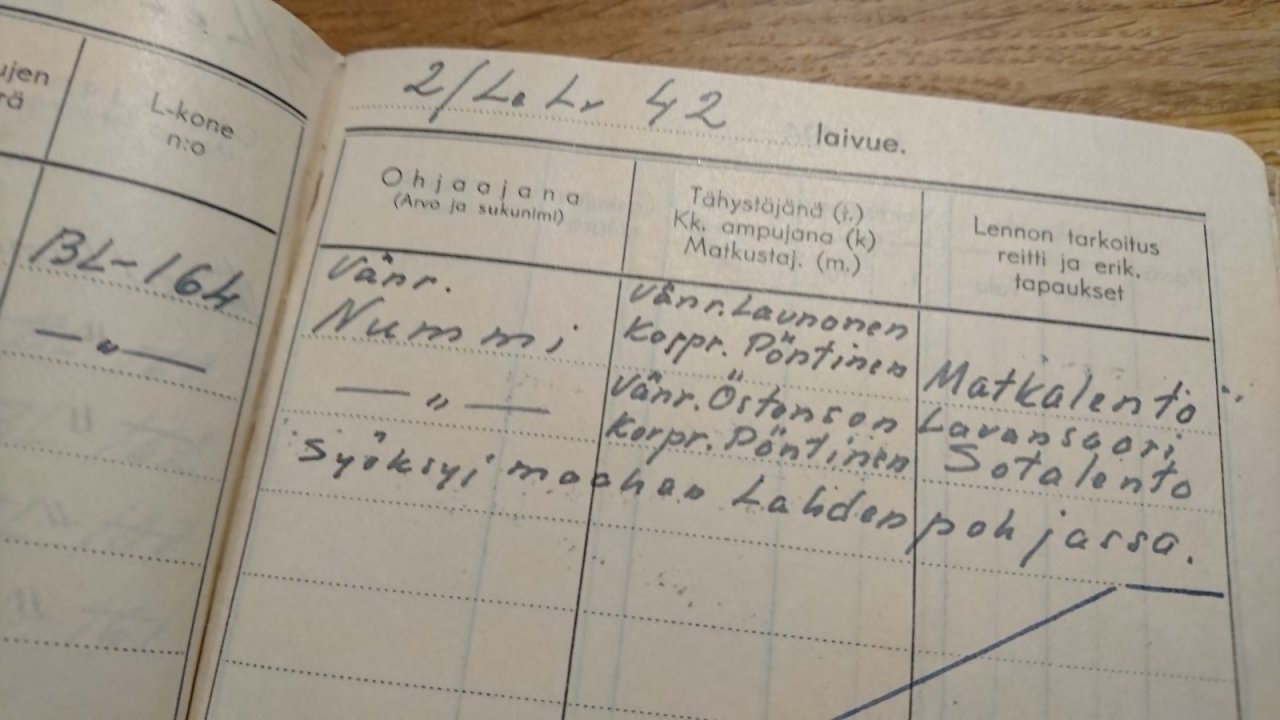 ujen
rä
L-kone
n:o
BL-164
— " —
2/Le. Lv 42 laivue.
Ohjaajana
(Arvo ja sukunimi)
Tähystäjänä (t.)
Kk. ampujana (k)
Matkustaj. (m.)
Lennon tarkoitus
reitti ja erik.
tapaukset
Vänr.
Nummi
Vänr. Launonen
Korpr. Pöntinen
Matkalento
— " —
Vänr. Östenson
Korpr. Pöntinen
Lavansaari
Sotalento
Syöksyi maahan Lahdenpohjassa.